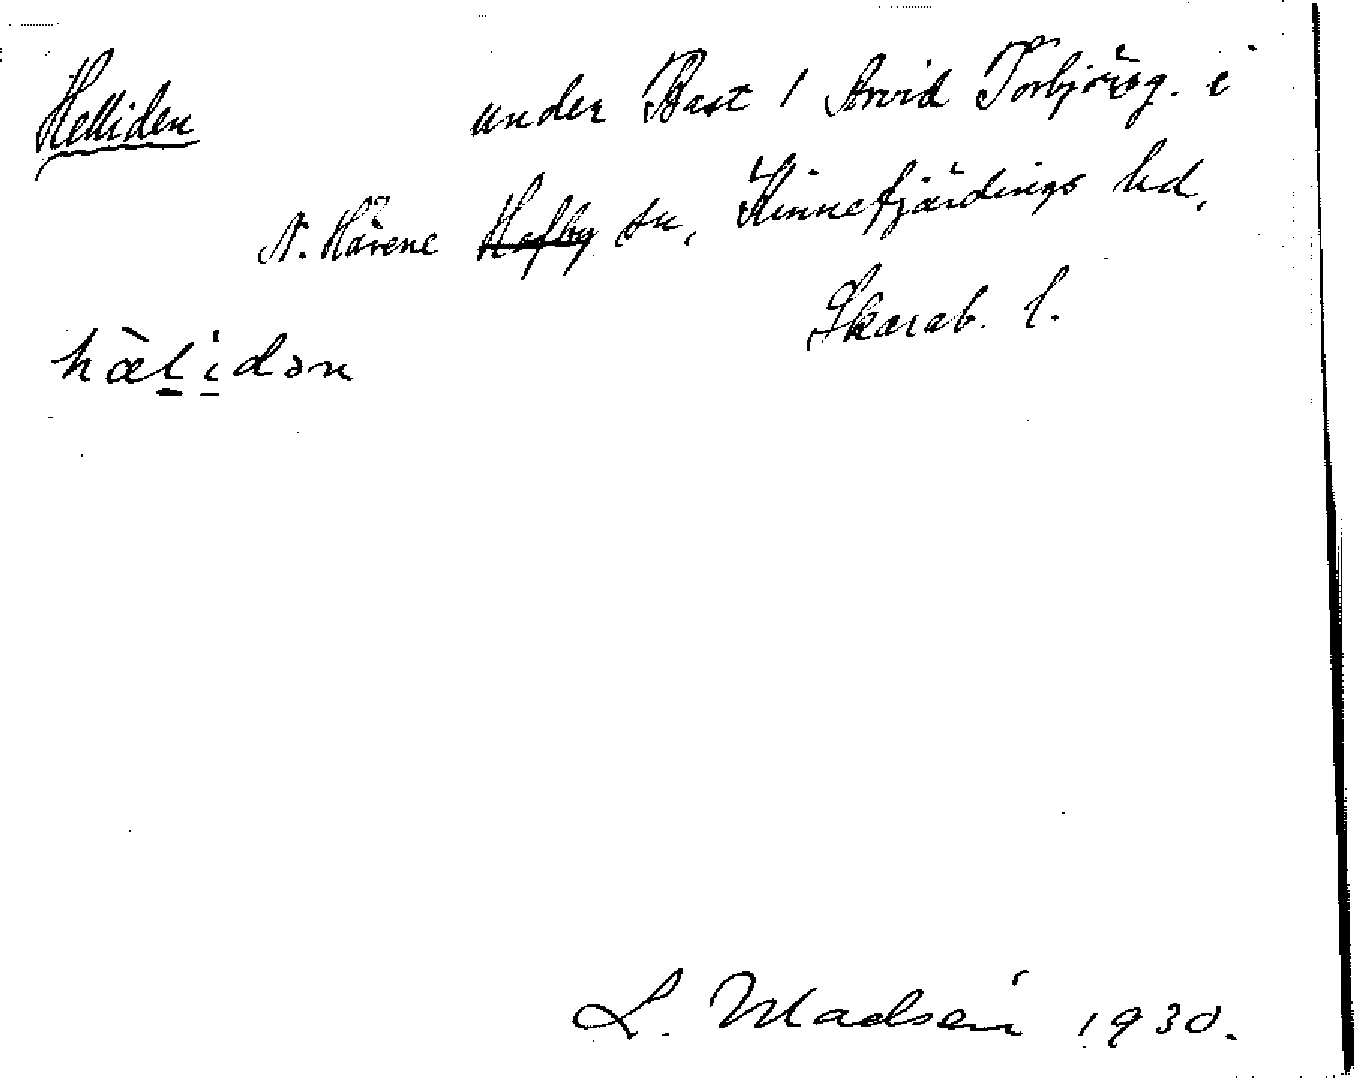 Helliden under Bast / Arvid Torbjörsg. i
N. Härene sn, Kinnefjärdings hd,
Skarab. l.
hælidən
L. Madsén 1930.